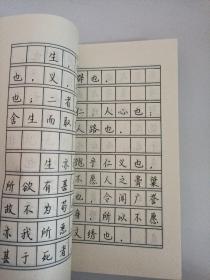 生，
也，义，
也；二者
舍生而取
生亦
所欲有甚
故不为苟
亦我所恶
甚于死者
也。
仁，人心也；
人路也。
饱乎仁义也，
不愿人之膏粱
也，令闻广誉
身，所以不愿
文绣也。